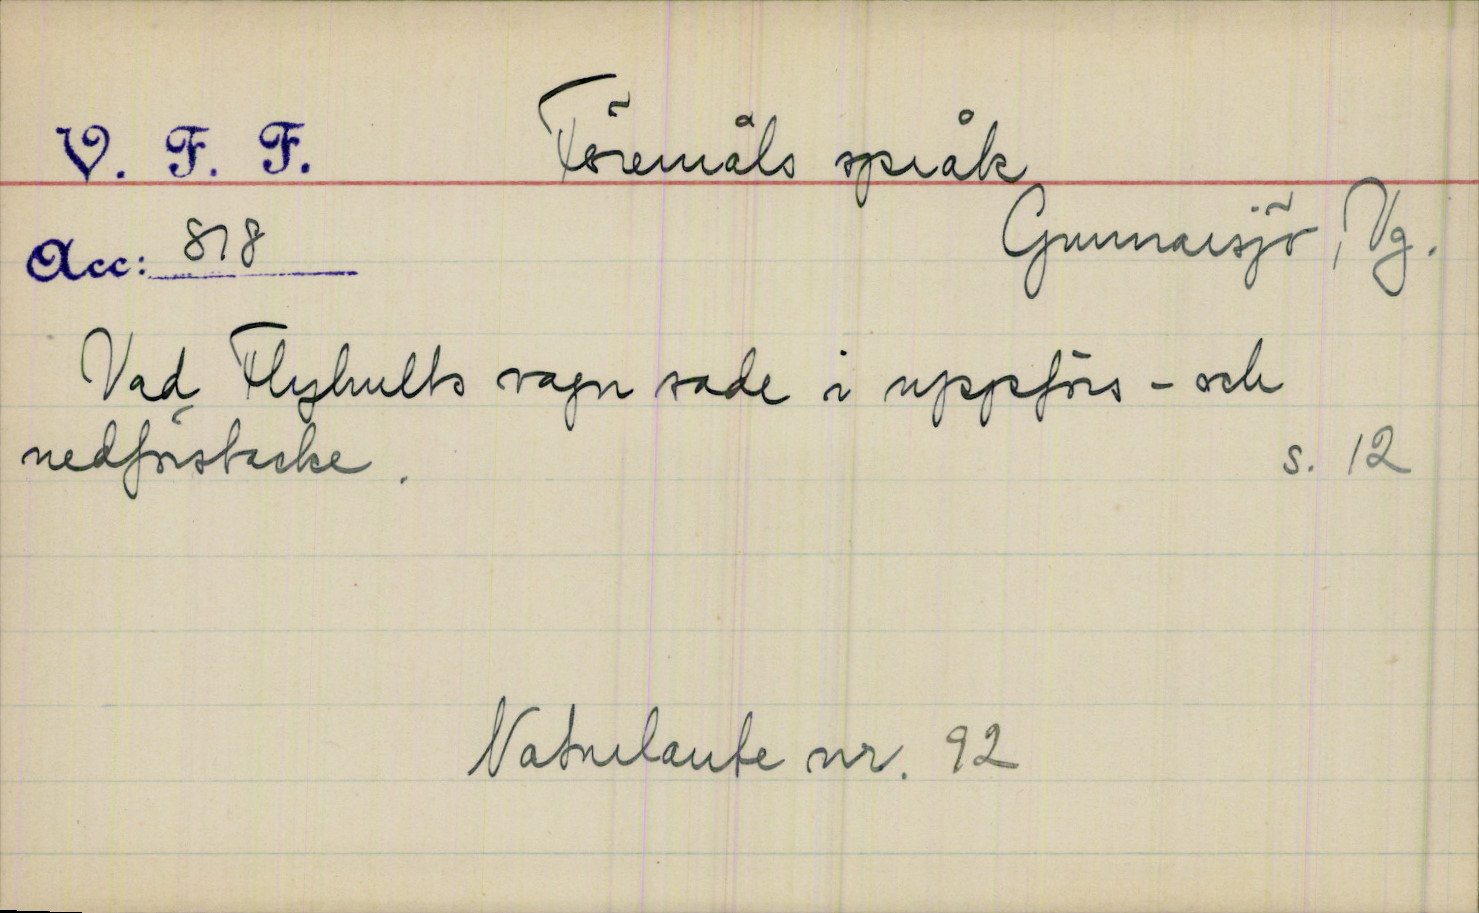 V. F. F. Föremåls språk
Acc: 818 Gunnarsjö, Vg.
Vad Flyhults vagn sade i uppförs- och
nedförsbacke. s. 12
Naturlaute nr. 92